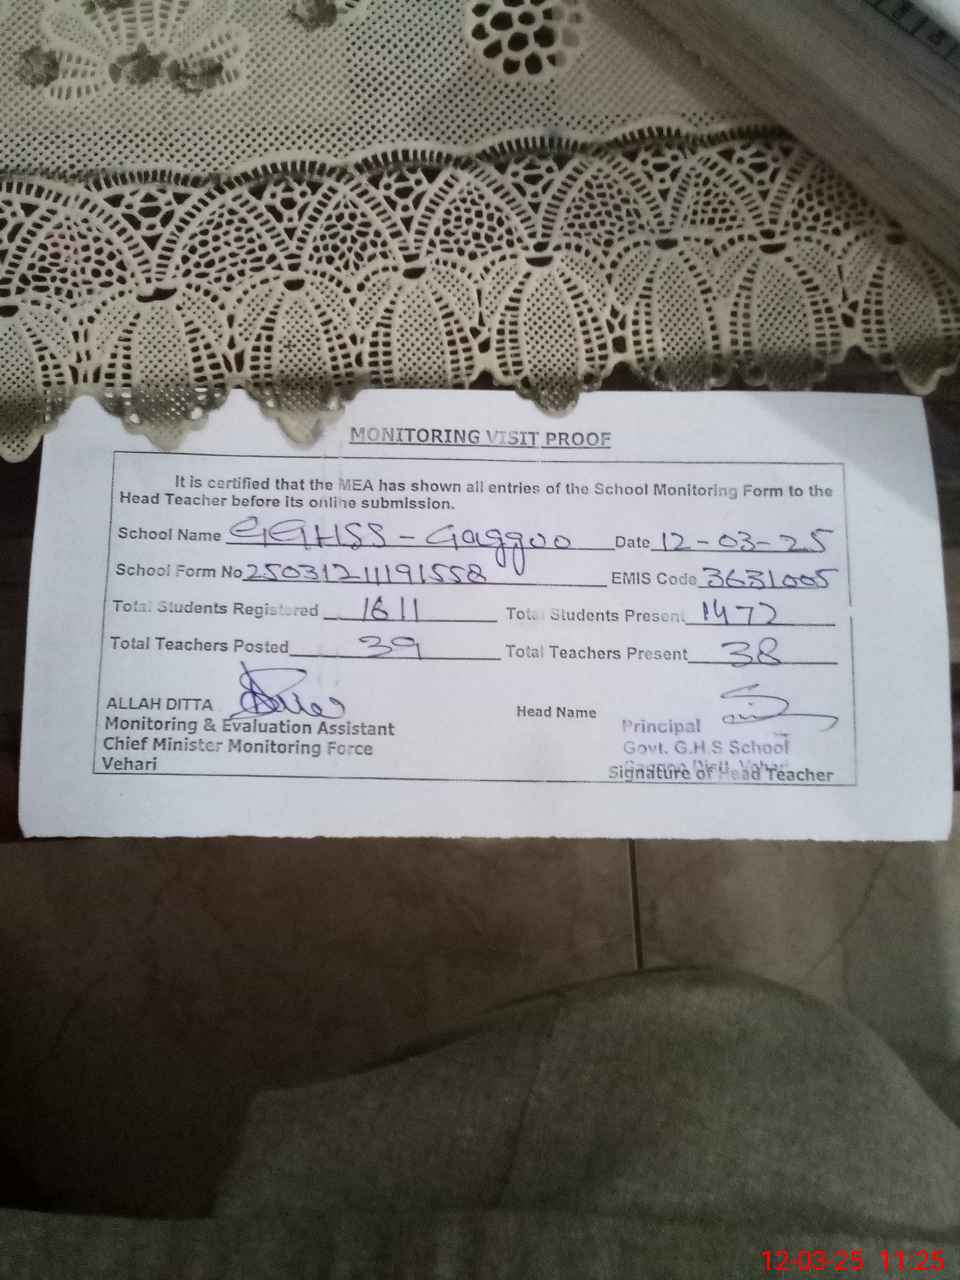 MONITORING VISIT PROOF
It is certified that the MEA has shown all entries of the School Monitoring Form to the
Head Teacher before its online submission.
School Name GGHSS - Gaggoo Date 12-03-25
School Form No 25031211191558 EMIS Code 3631005
Total Students Registered 1611 Total Students Present 1472
Total Teachers Posted 39 Total Teachers Present 38
ALLAH DITTA Head Name
Monitoring & Evaluation Assistant Principal
Chief Minister Monitoring Force Govt. G.H.S School
Vehari Signature of Head Teacher
12-03-25 11:25